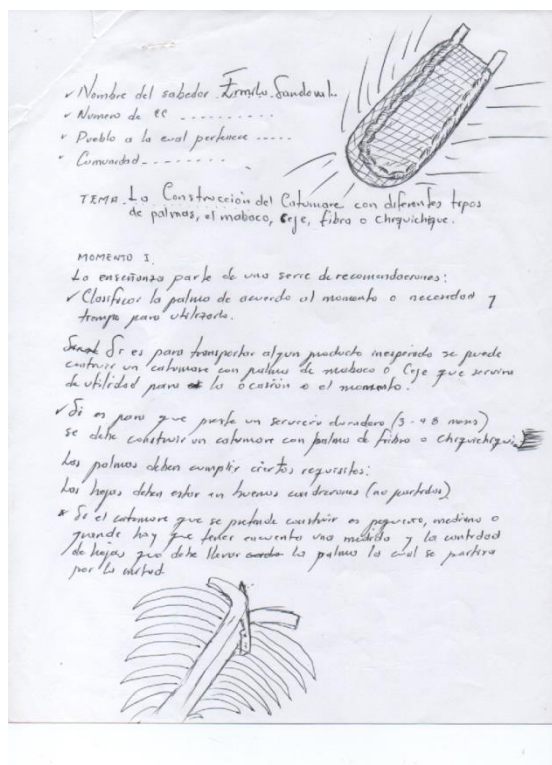 ✓ Nombre del sabedor Ermilo Sandoval..
✓ Numero de CC ..........
✓ Pueblo a la cual pertenece .....
✓ Comunidad.........
TEMA. La Construcción del Catumare con diferentes tipos
de palmas, el maboco, Ceje, fibra o Chiquichique.
MOMENTO I.
La enseñanza parte de una serie de recomendaciones:
✓ Clasificar la palma de acuerdo al momento o necesidad y
tiempo para utilizarlo.
Si es para transportar algun producto inesperado se puede
contruir un catumare con palma de maboco o Ceje que servira
de utilidad para la ocasión o el momento.
✓ Si es para que preste un servicio duradero (3-48 meses)
se debe construir un catumare con palma de fibra o Chiquichiqui.
Las palmas deben cumplir ciertos requisitos:
Las hojas deben estar en buenas condiciones (no partidas)
* Si el catumare que se pretende construir es pequeño, mediano o
grande hay que tener encuenta una medida y la cantidad
de hojas que debe llevar la palma la cual se partira
por la mitad.